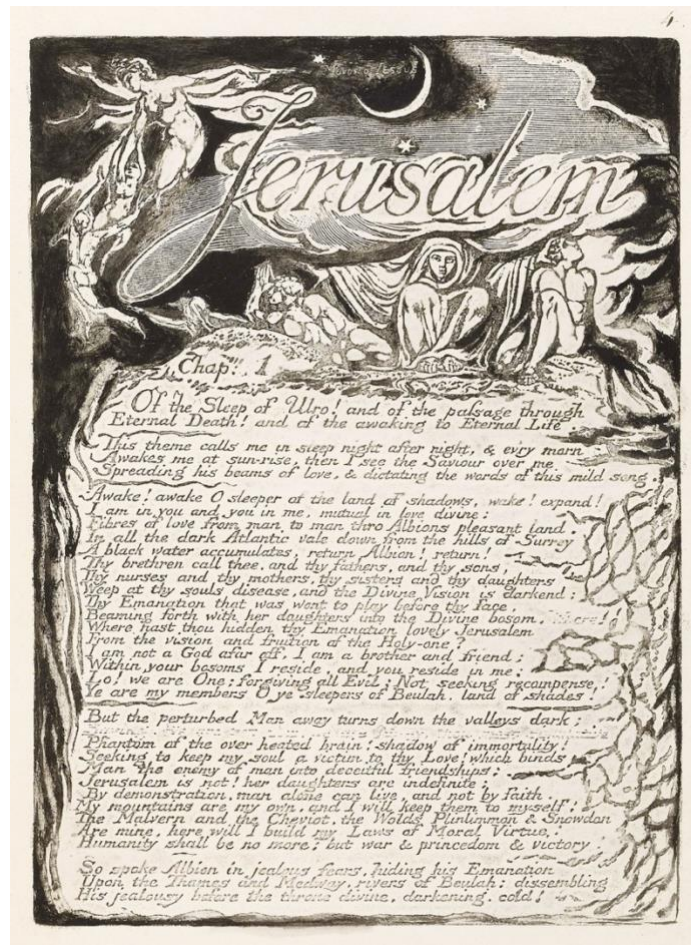 4
Jerusalem
Chap: 1
Of the Sleep of Ulro! and of the passage through
Eternal Death! and of the awaking to Eternal Life.
This theme calls me in sleep night after night, & ev'ry morn
Awakes me at sun-rise, then I see the Saviour over me
Spreading his beams of love, & dictating the words of this mild song.
Awake! awake O sleeper of the land of shadows, wake! expand!
I am in you and you in me, mutual in love divine:
Fibres of love from man to man thro Albions pleasant land.
In all the dark Atlantic vale down from the hills of Surrey
A black water accumulates, return Albion! return!
Thy brethren call thee, and thy fathers, and thy sons,
Thy nurses and thy mothers, thy sisters and thy daughters
Weep at thy souls disease, and the Divine Vision is darkend:
Thy Emanation that was wont to play before thy face,
Beaming forth with her daughters into the Divine bosom.
Where hast thou hidden thy Emanation lovely Jerusalem
From the vision and fruition of the Holy-one?
I am not a God afar off, I am a brother and friend;
Within your bosoms I reside, and you reside in me:
Lo! we are One; forgiving all Evil; Not seeking recompense!
Ye are my members O ye sleepers of Beulah, land of shades!
But the perturbed Man away turns down the valleys dark;
Phantom of the over heated brain! shadow of immortality!
Seeking to keep my soul a victim to thy Love! which binds
Man the enemy of man into deceitful friendships:
Jerusalem is not! her daughters are indefinite:
By demonstration, man alone can live, and not by faith.
My mountains are my own, and I will keep them to myself!
The Malvern and the Cheviot, the Wolds Plinlimmon & Snowdon
Are mine, here will I build my Laws of Moral Virtue!
Humanity shall be no more: but war & princedom & victory!
So spoke Albion in jealous fears, hiding his Emanation
Upon the Thames and Medway, rivers of Beulah: dissembling
His jealousy before the throne divine, darkening, cold!